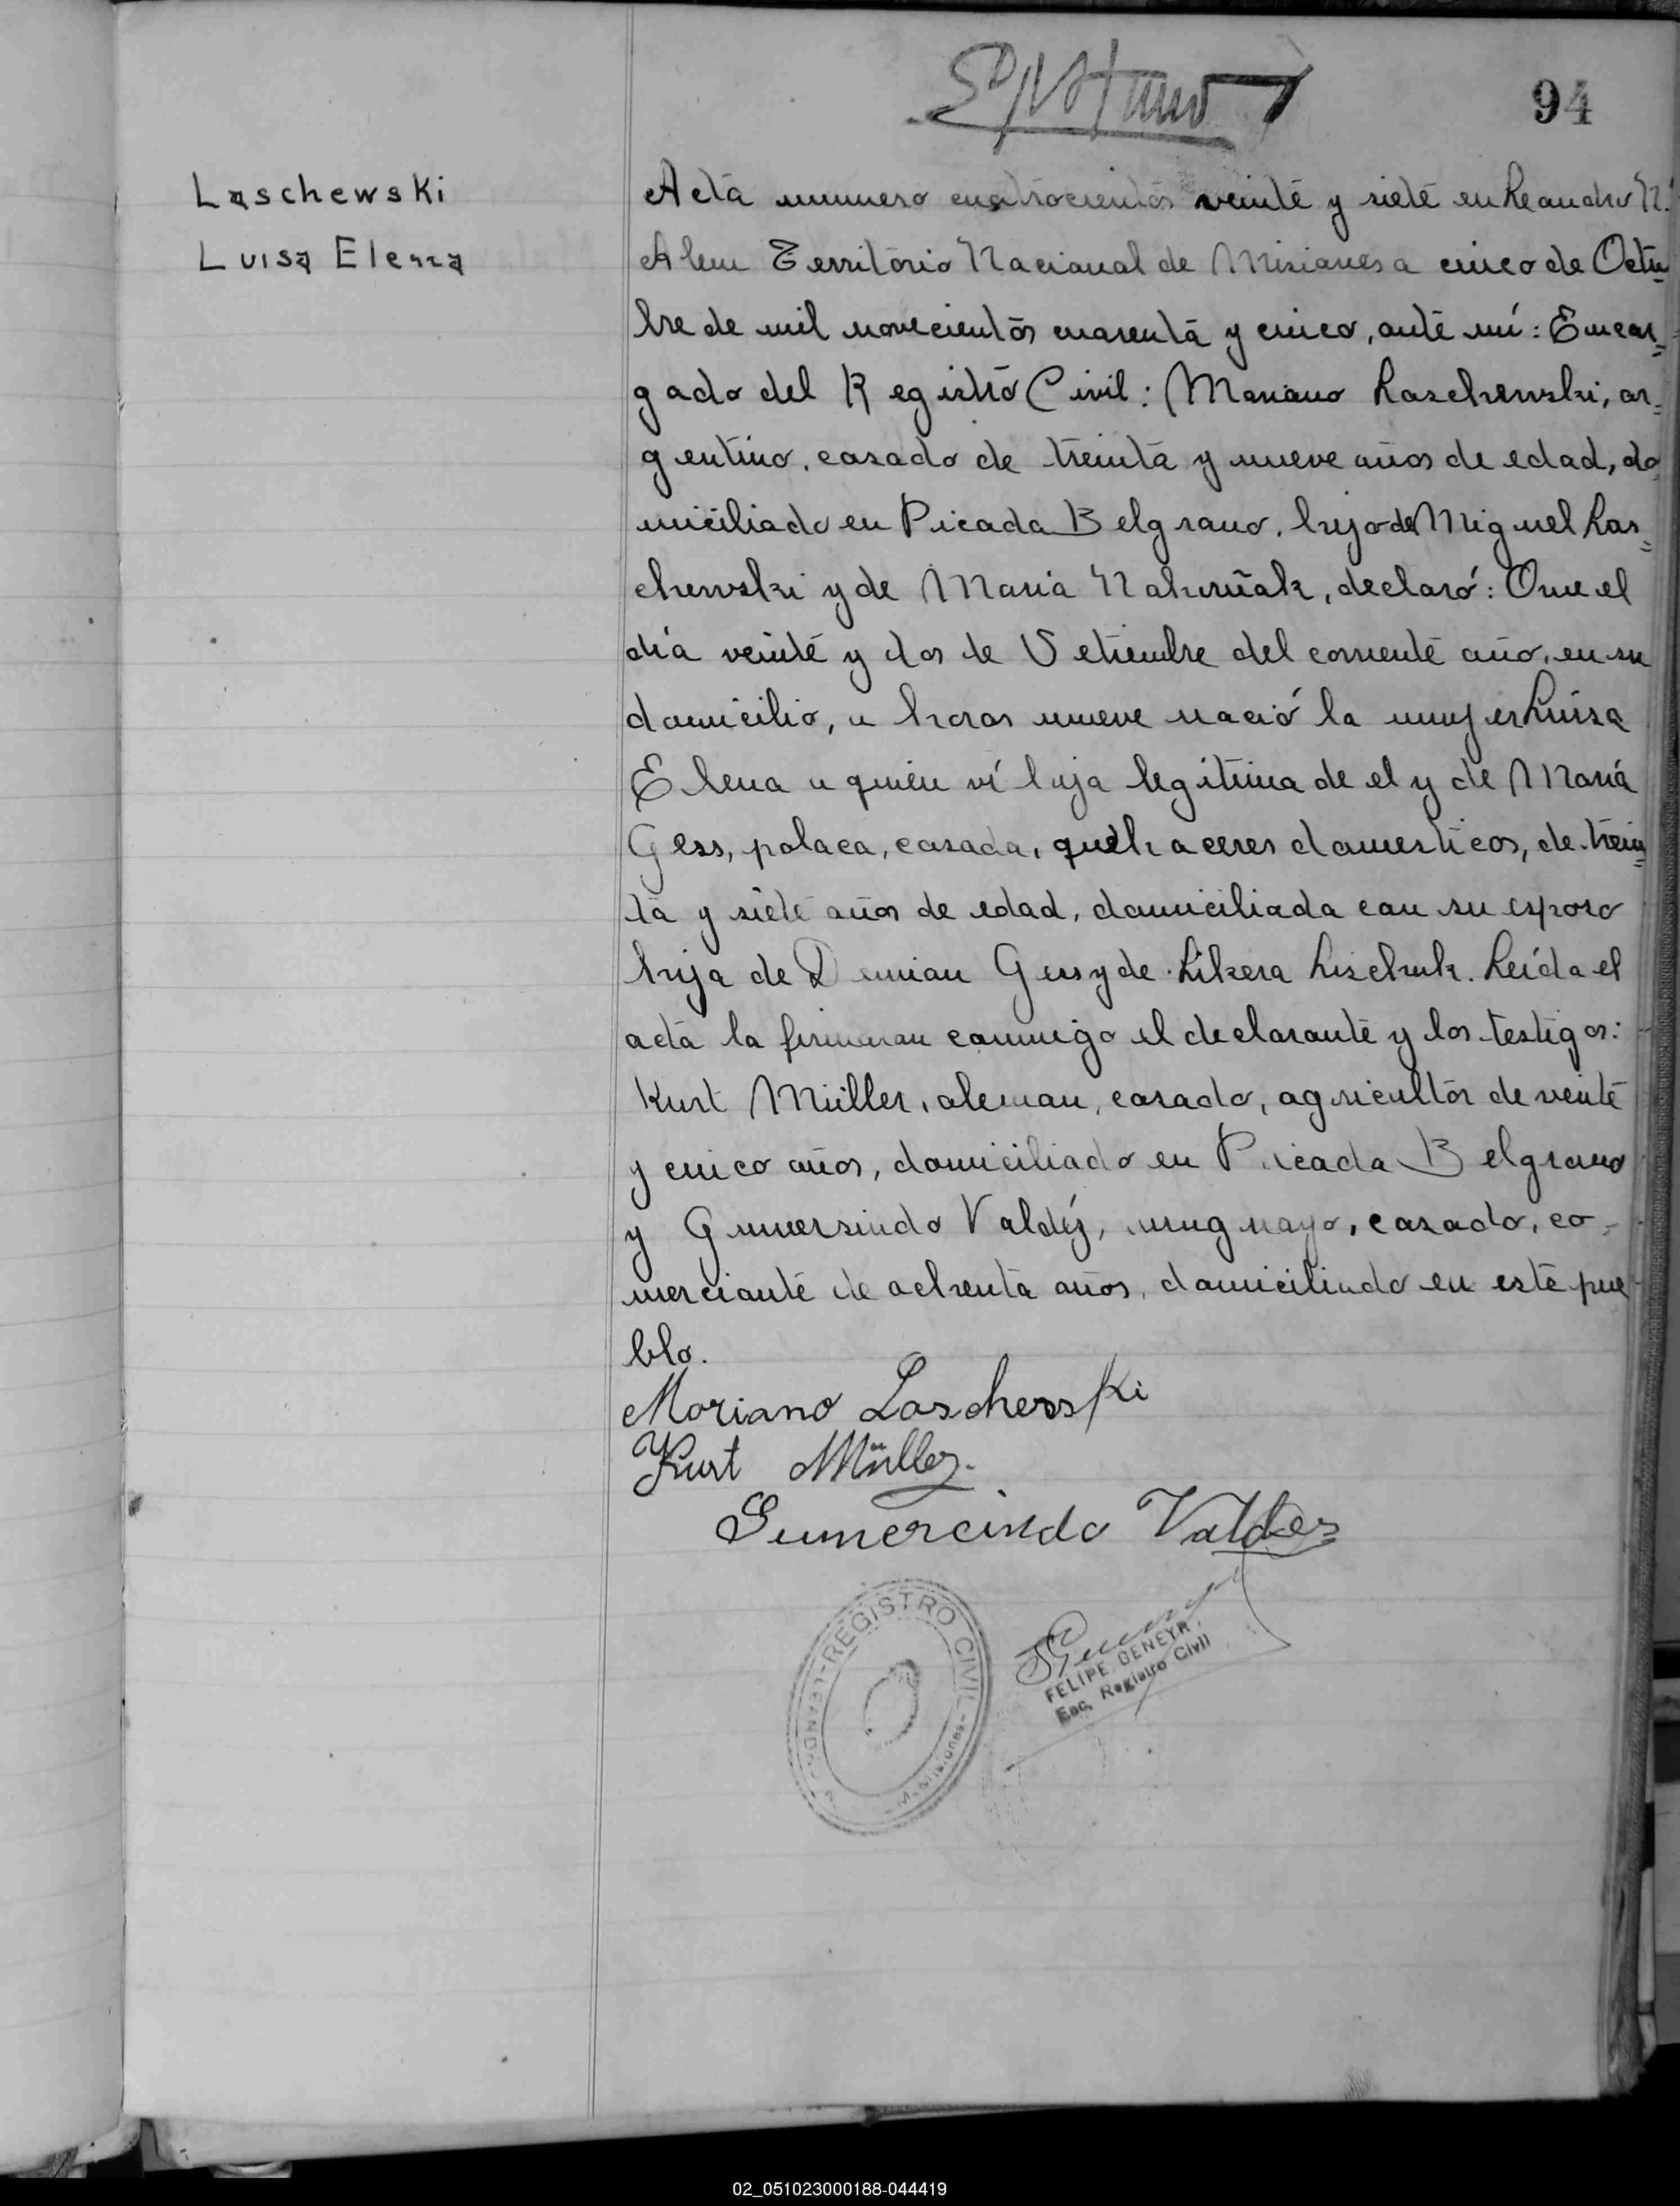 94
Laschewski
Luisa Elena
Acta numero cuatrocientos veinte y siete en Leandro N.
Alem Territorio Nacional de Misiones a cinco de Octu=
bre de mil novecientos cuarenta y cinco, ante mí: Encar=
gado del Registro Civil: Mariano Laschewski, ar=
gentino, casado de treinta y nueve años de edad, do
miciliado en Picada Belgrano, hijo de Miguel Las=
chewski y de Maria, declaró: Que el
día veinte y dos de Setiembre del corriente año, en su
domicilio, a horas nueve nació la mujer Luisa
Elena a quien ví hija legitima de el y de María
Gess, polaca, casada, quehaceres domesticos, de trein=
ta y siete años de edad, domiciliada con su esposo
hija de Demian Gess y de Likera Lischuk. Leída el
acta la firmaran conmigo el declarante y los testigos:
Kurt Müller, aleman, casado, agricultor de veinte
y cinco años, domiciliado en Picada Belgrano
y Gumersindo Valdéz, uruguayo, casado, co-
merciante de ochenta años, domiciliado en este pue
blo.
Mariano Laschewski
Kurt Müller.
Gumercindo Valdes
REGISTRO CIVIL - Misiones
FELIPE BENEYR
Enc. Registro Civil
02_051023000188-044419